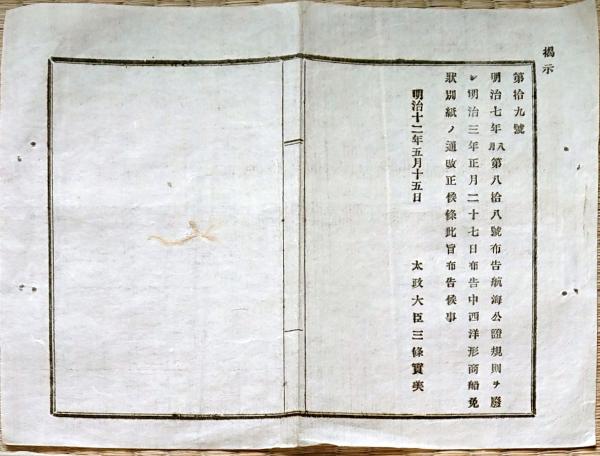 揭示
第拾九號
明治七年八月第八拾八號布告航海公證規則ヲ廢
シ明治三年正月二十七日布告中西洋形商船免
狀別紙ノ通改正候條此旨布告候事
明治十二年五月十五日
太政大臣三條實美